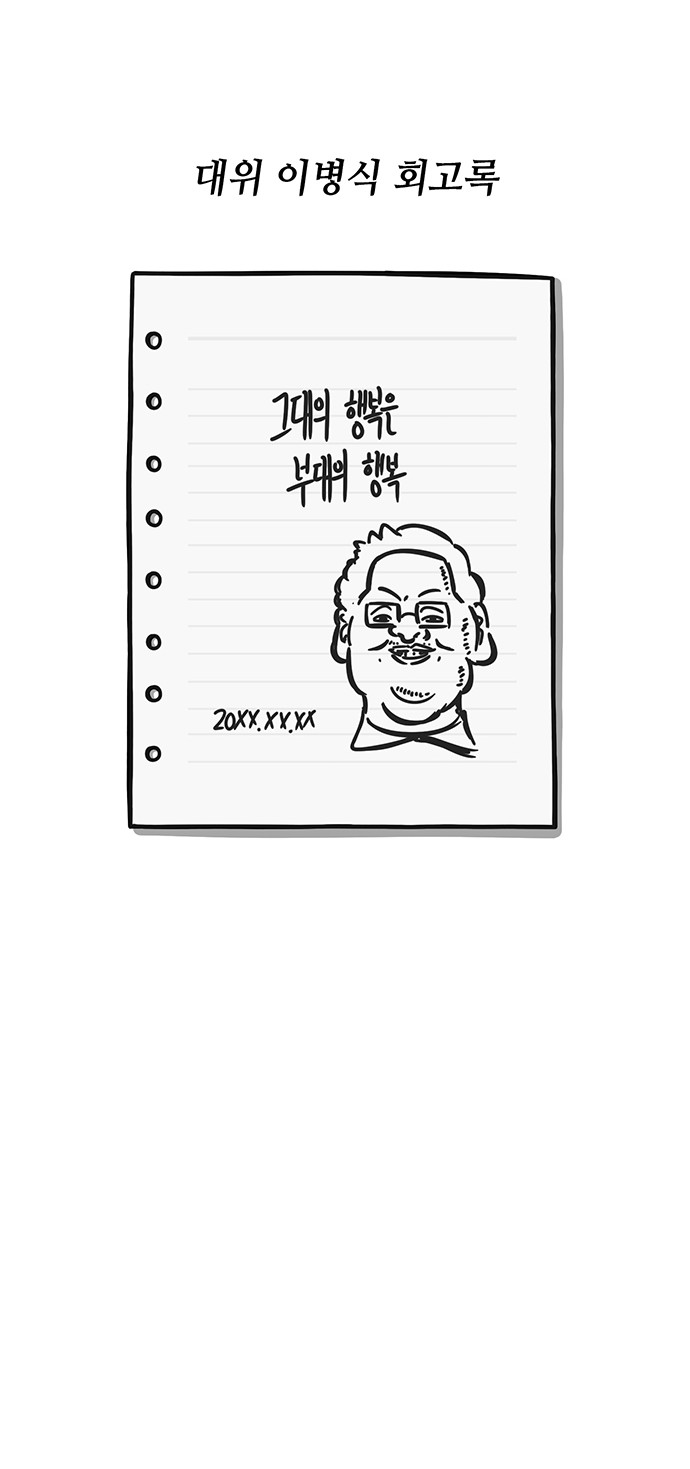 대위 이병식 회고록
그대의 행복은
부대의 행복
20XX.XX.XX